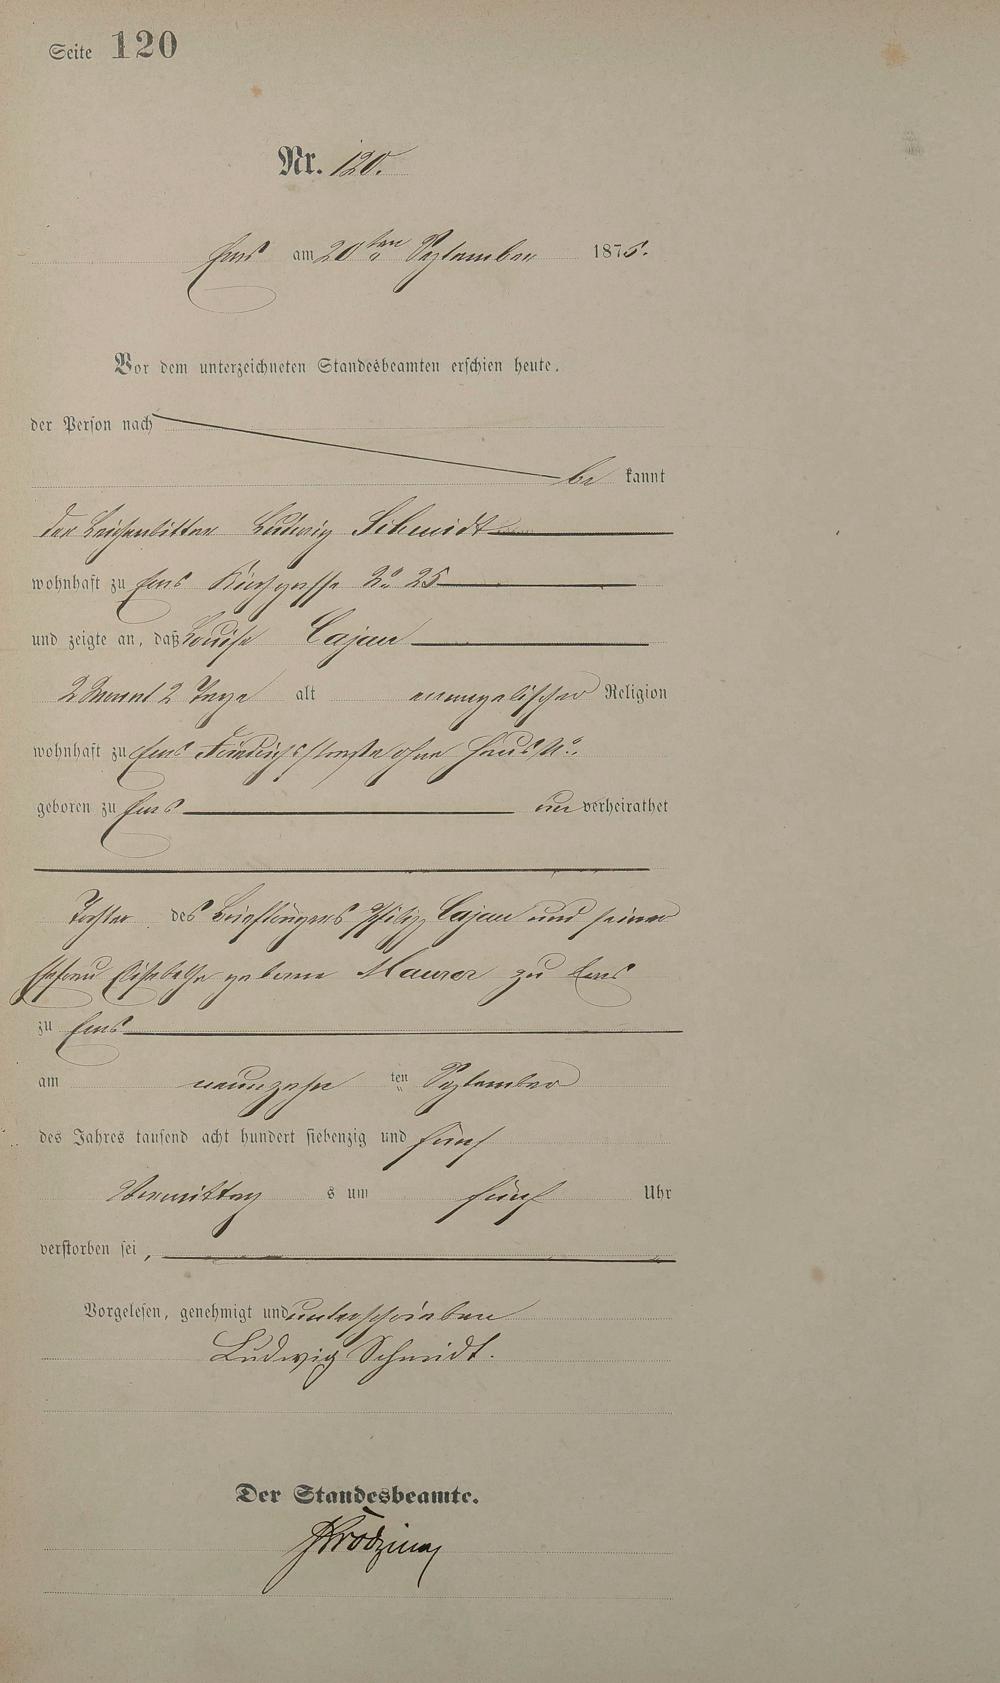 Seite 120
Nr. 120.
Ems am 20ten September 1875.
Vor dem unterzeichneten Standesbeamten erschien heute,
der Person nach
be kannt
der Leichenbitter Ludwig Schmidt
wohnhaft zu Ems Kirchgasse No 25
und zeigte an, daß Louise Cajan
2 Monat 2 Tage alt evangelischer Religion
wohnhaft zu Ems Friedrichsstraße ohne Haus No.
geboren zu Ems un verheirathet
Tochter des Briefträgers Philipp Cajan und seiner
Ehefrau Elisabethe geborne Maurer zu Ems
zu Ems
am neunzehn ten September
des Jahres tausend acht hundert siebenzig und fünf
Vormittag s um fünf Uhr
verstorben sei,
Vorgelesen, genehmigt und unterschrieben
Ludwig Schmidt.
Der Standesbeamte.